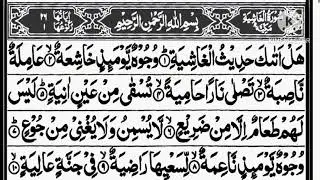 بِسْمِ اللّٰهِ الرَّحْمٰنِ الرَّحِيْمِ
هَلْ اَتٰىكَ حَدِيْثُ الْغَاشِيَةِ ۝١ وُجُوْهٌ يَّوْمَىِٕذٍ خَاشِعَةٌ ۝٢ عَامِلَةٌ
نَّاصِبَةٌ ۝٣ تَصْلٰى نَارًا حَامِيَةً ۝٤ تُسْقٰى مِنْ عَيْنٍ اٰنِيَةٍ ۝٥ لَيْسَ
لَهُمْ طَعَامٌ اِلَّا مِنْ ضَرِيْعٍ ۝٦ لَّا يُسْمِنُ وَلَا يُغْنِيْ مِنْ جُوْعٍ ۝٧
وُجُوْهٌ يَّوْمَىِٕذٍ نَّاعِمَةٌ ۝٨ لِّسَعْيِهَا رَاضِيَةٌ ۝٩ فِيْ جَنَّةٍ عَالِيَةٍ ۝١٠